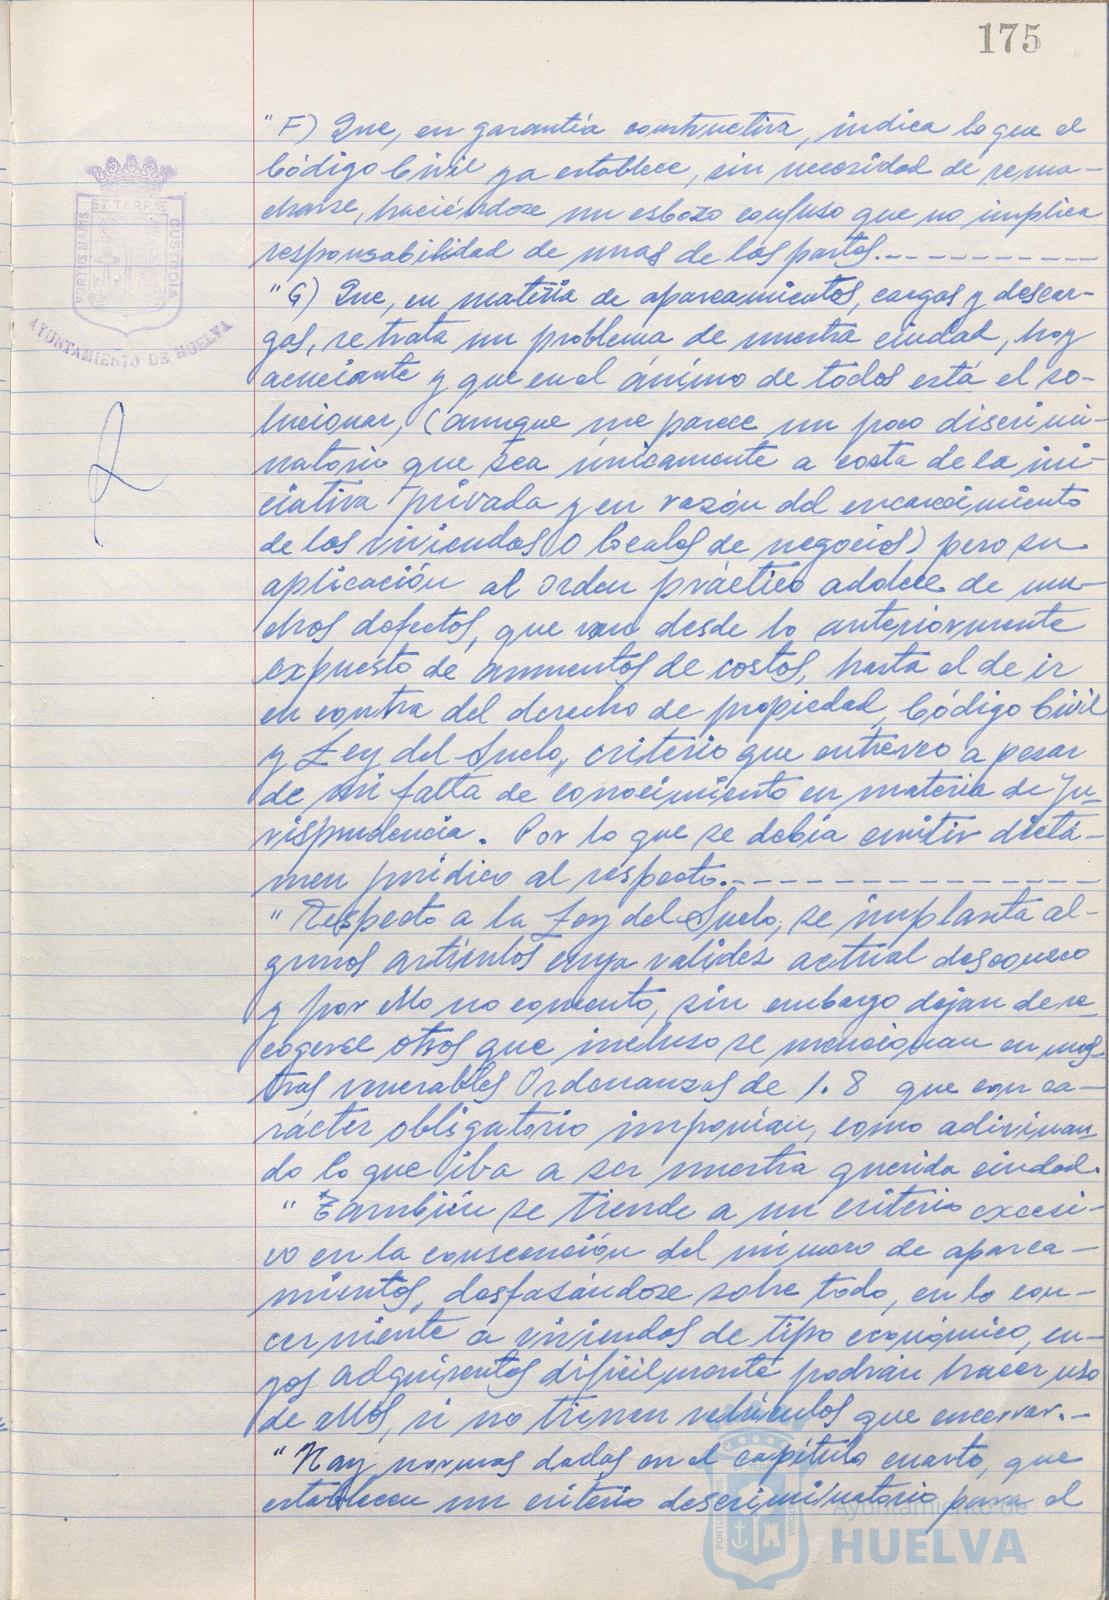 175
PORTUS MARIS
ET TERRAE
CUSTODIA
AYUNTAMIENTO DE HUELVA
"F) Que, en garantía constructiva, indica lo que el
Código Civil ya establece, sin necesidad de rema-
charse, haciéndose un esbozo confuso que no implica
responsabilidad de unas de las partes.----------
"G) Que, en materia de aparcamientos, cargas y descar-
gas, se trata un problema de nuestra ciudad, hoy
acuciante y que en el ánimo de todos está el so-
lucionar, (aunque me parece un poco discrimi-
natorio que sea únicamente a costa de la ini-
ciativa privada y en razón del encarecimiento
de las viviendas o locales de negocios) pero su
aplicación al orden práctico adolece de mu-
chos defectos, que van desde lo anteriormente
expuesto de aumentos de costos, hasta el de ir
en contra del derecho de propiedad, Código Civil
y Ley del Suelo, criterio que entreveo a pesar
de mi falta de conocimiento en materia de Ju-
risprudencia. Por lo que se debía emitir dictá-
men jurídico al respecto.---------------
"Respecto a la Ley del Suelo, se implanta al-
gunos artículos cuya validez actual desconozco
y por ello no comento, sin embargo dejan de re-
cogerse otros que incluso se mencionan en nues-
tras venerables Ordenanzas de 1.8 que con ca-
rácter obligatorio imponían, como adivinan-
do lo que iba a ser nuestra querida ciudad.
"También se tiende a un criterio excesi-
vo en la consecución del número de aparca-
mientos, desfasándose sobre todo, en lo con-
cerniente a viviendas de tipo económico, cu-
yos adquirentes difícilmente podrán hacer uso
de ellos, si no tienen vehículos que encerrar.-
"Hay normas dadas en el capítulo cuarto, que
establecen un criterio descriminatorio para el
Ayuntamiento de
HUELVA